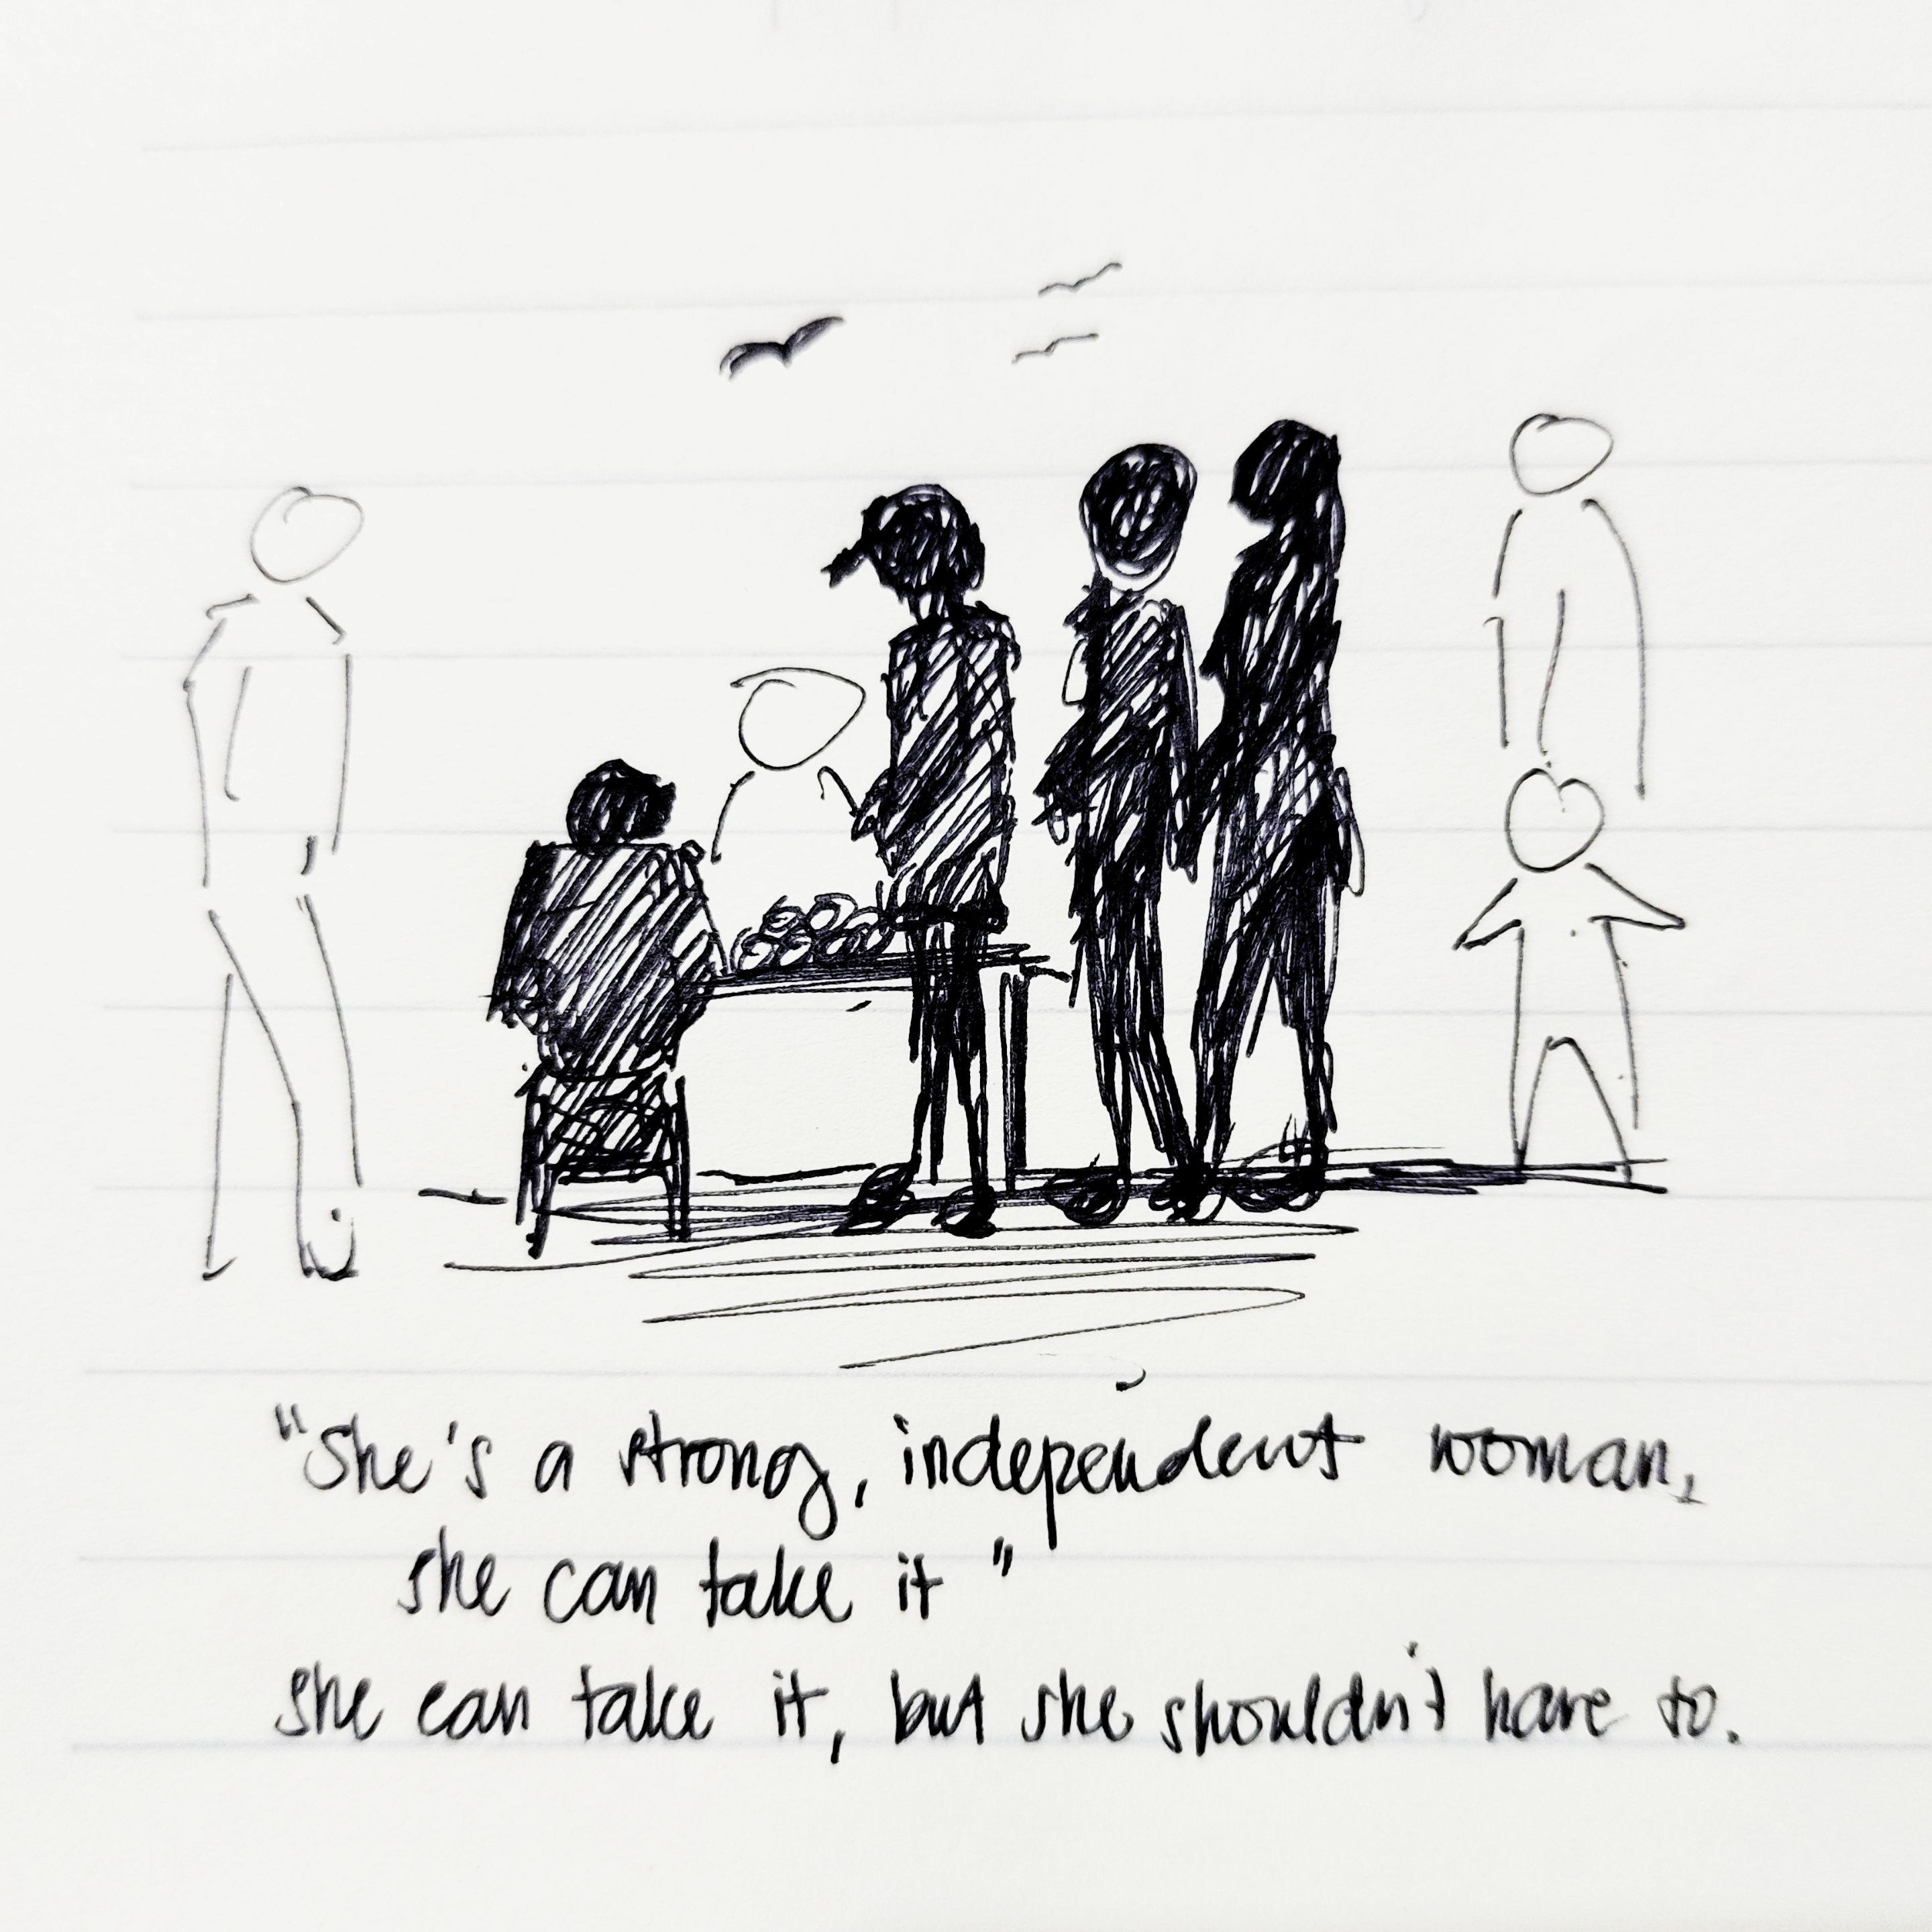 "She's a strong, independent woman,
she can take it"
she can take it, but she shouldn't have to.